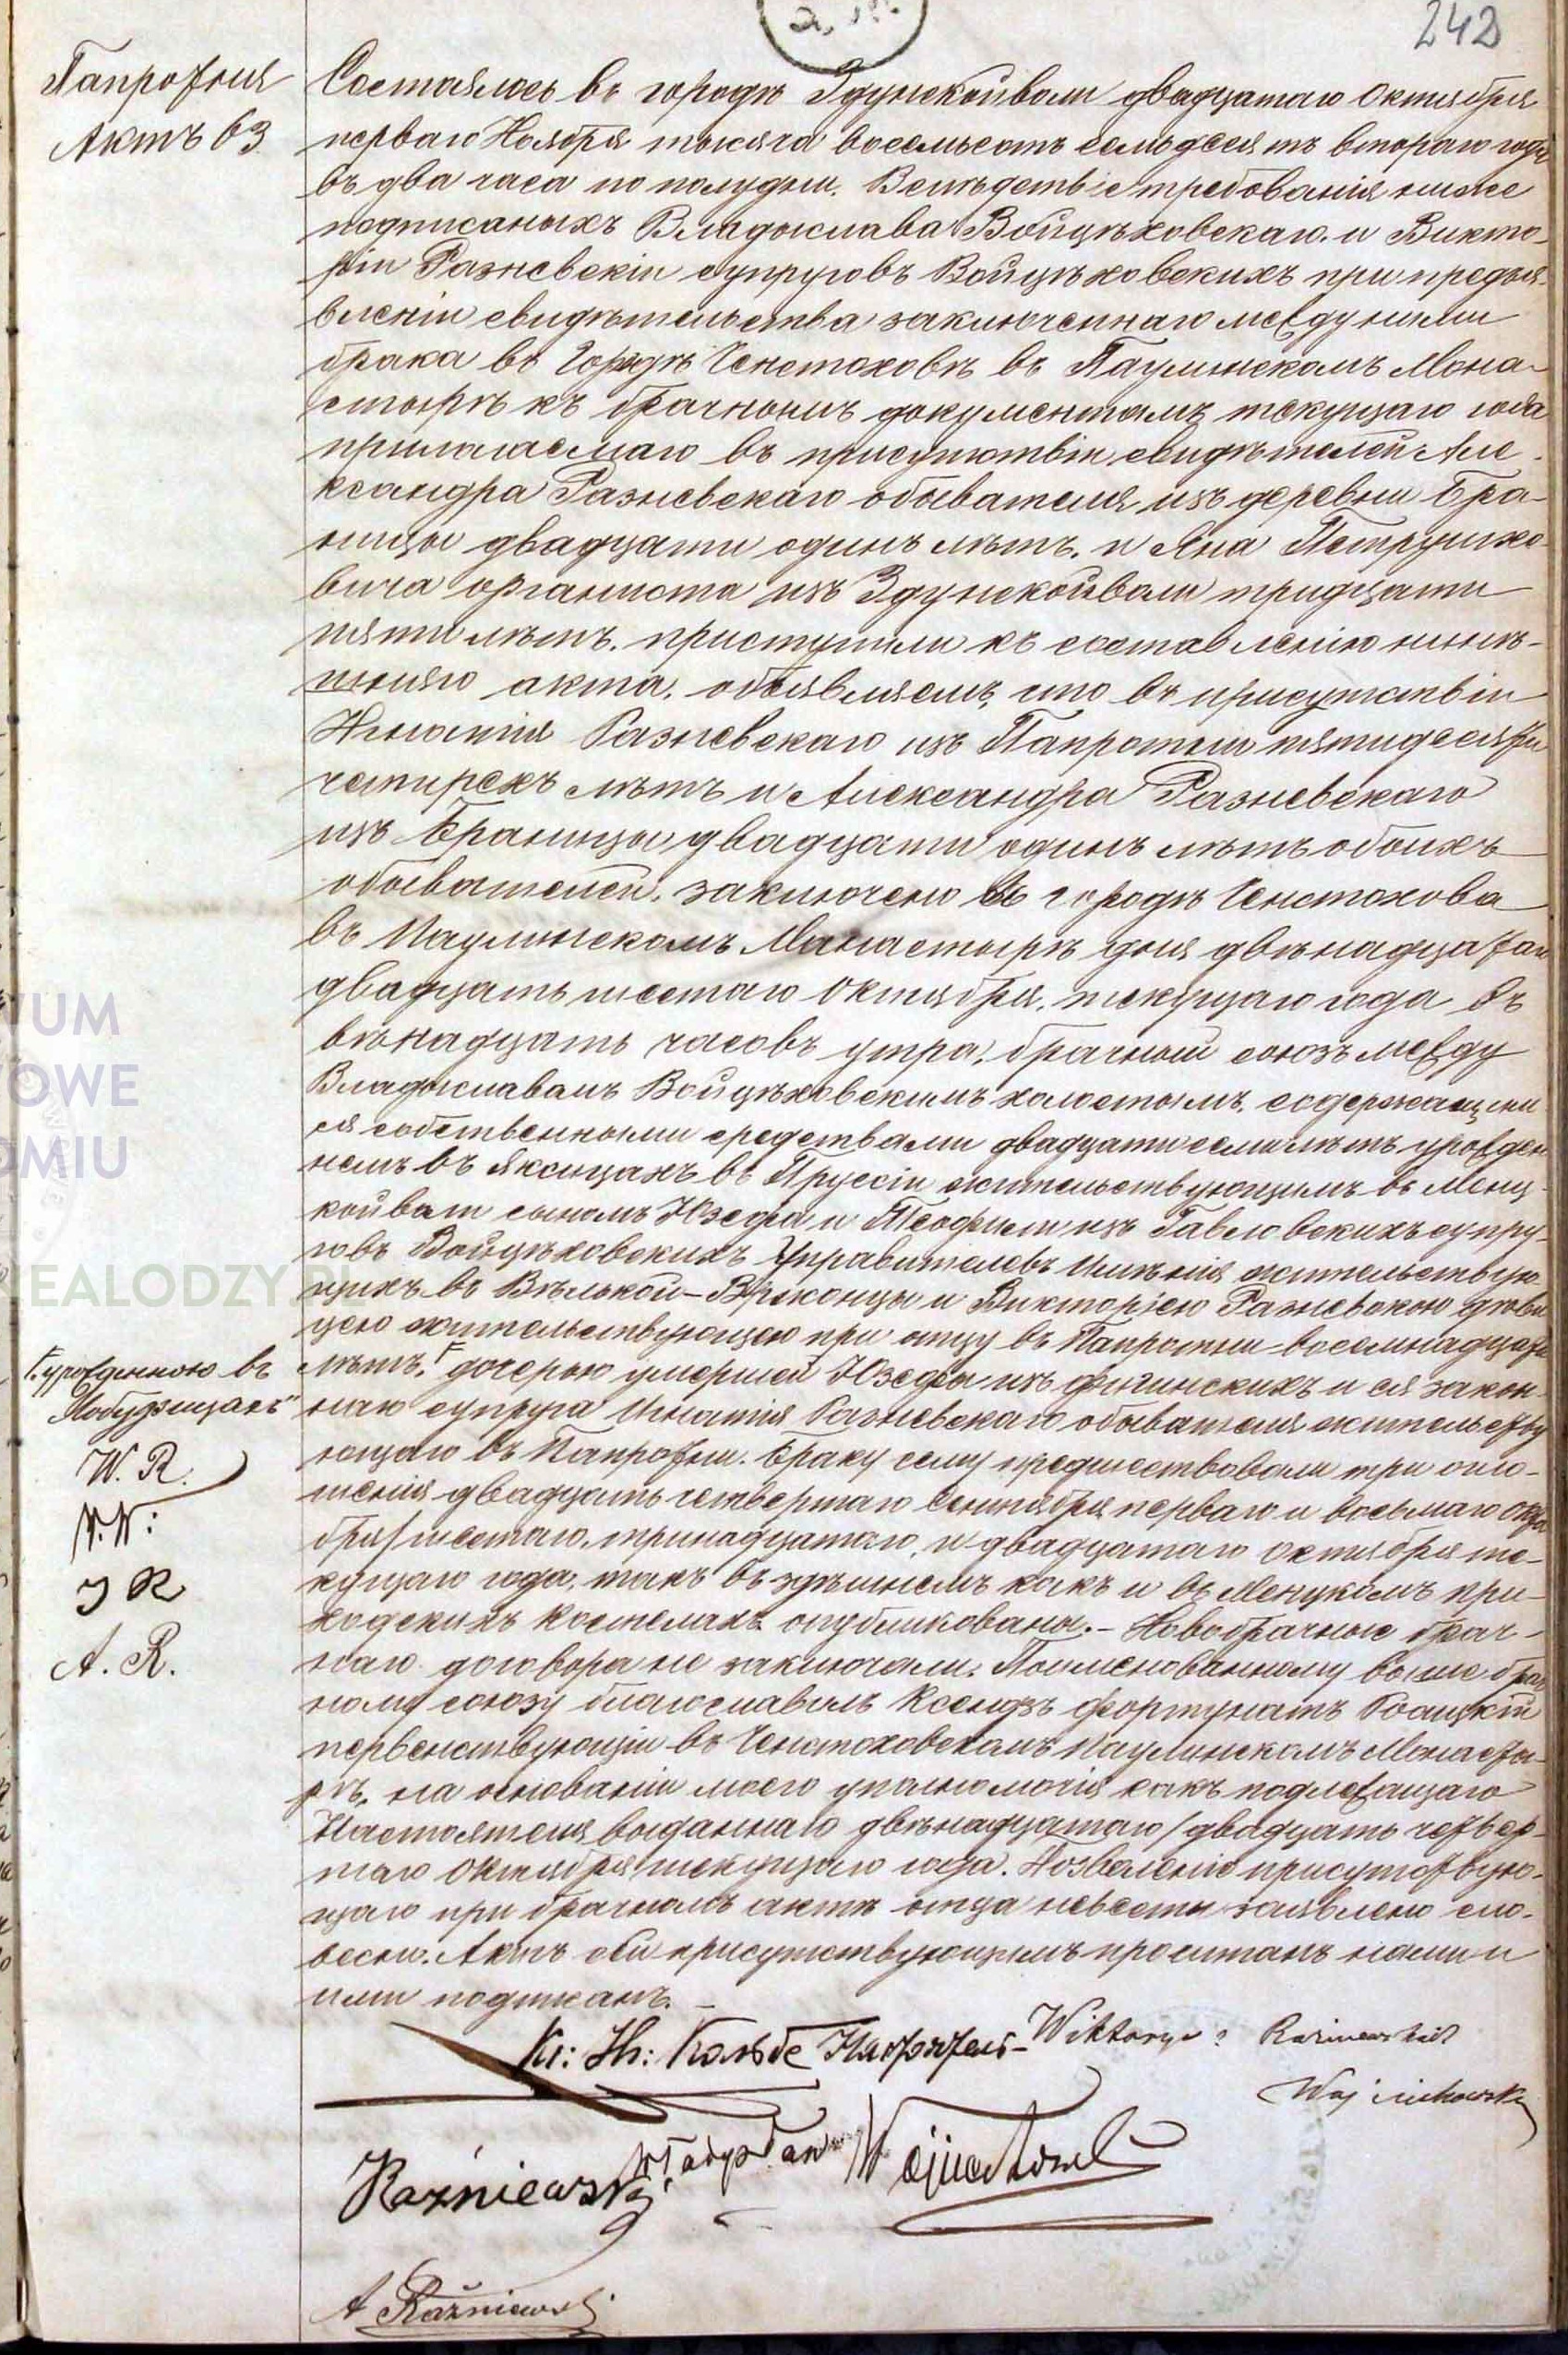 242
Папротня
Актъ 63
Состоялось въ городѣ Здунскойволи двадцатаго Октября
перваго Ноября тысяча восемьсотъ семьдесятъ втораго года
въ два часа по полудни. Вслѣдствіе требованія ниже
подписаныхъ Владыслава Войцѣховскаго и Викто-
ріи Разневскіи супруговъ Войцѣховскихъ при предъя-
вленіи свидѣтельства заключеннаго между ними
брака въ Городѣ Ченстоховѣ въ Паулинскомъ Мона-
стырѣ къ брачнымъ документамъ текущаго года
прилагаемаго въ присутствіи свидѣтелей Але-
ксандра Разневскаго обывателя изъ деревни Бра-
ницы двадцати одинъ лѣтъ. и Яна Петрушко-
вича органиста изъ Здунскойволи тридцати
пяти лѣтъ. приступили къ составленію нинѣ-
шняго акта. объявляемъ, что въ присутствіи
Игнатія Разневскаго изъ Папротни пятидесяти
четырехъ лѣтъ и Александра Разневскаго
изъ Браницы двадцати одинъ лѣтъ обоихъ
обывателей. заключено въ городѣ Ченстохова
въ Паулинскомъ Манастырѣ дня двѣнадцатаго
двадцать шестаго Октября. текущаго года въ
часовъ утра. брачный союзъ между
Владыславамъ Войцѣховскимъ холостымъ. содержащим
ся собственными средствами двадцати семи лѣтъ урожден
немъ въ Яксицахъ въ Пруссіи жительствующимъ въ Менц-
койволи сыномъ Юзефа и Теофили изъ Гавловскихъ супру-
говъ Войцѣховскихъ Управителевъ Имѣнія жительствую-
щихъ въ Вѣлькой- и Викторіею Разневскою
цею жительствующею при отцу въ Папротни восемнадцати
лѣтъ. Г дочерью умершей Юзефы изъ и ея закон-
наго супруга Игнатія Разневскаго обывателя жительству
ющаго въ Папротни. Браку сему предшествовали три огло-
шенія двадцать четвертаго Сентября перваго и восьмаго Октя
бря/шестаго. тринадцатаго. и двадцатаго Октября те-
кущаго года. такъ въ здѣшнемъ какъ и въ Менцкомъ при-
ходскихъ костелахъ опубликованы.- Новобрачные брач-
наго договора не заключали. Поименованному выше брач
ному союзу благославилъ Ксендзъ Фортунатъ
первенствующій въ Ченстоховскомъ Паулинскомъ Монасты-
рѣ. на основаніи моего уполномочія какъ подлежащаго
Настоятеля выданнаго двѣнадцатаго/двадцать четвер-
таго Октября текущаго года. Позволеніе присутствую-
щаго при брачномъ актѣ отца невесты заявлено сло-
весно. Актъ сей присутствующимъ прочитанъ нами и
ими подписанъ.
Г. урожденною въ
W. R.
W. W:
J R
A. R.
Кс: Кольбе Настоятель
Wiktorya Raźniewskich
Wojciechowska
Raźniewski
Władysław Wojciechowski
A Raźniewski